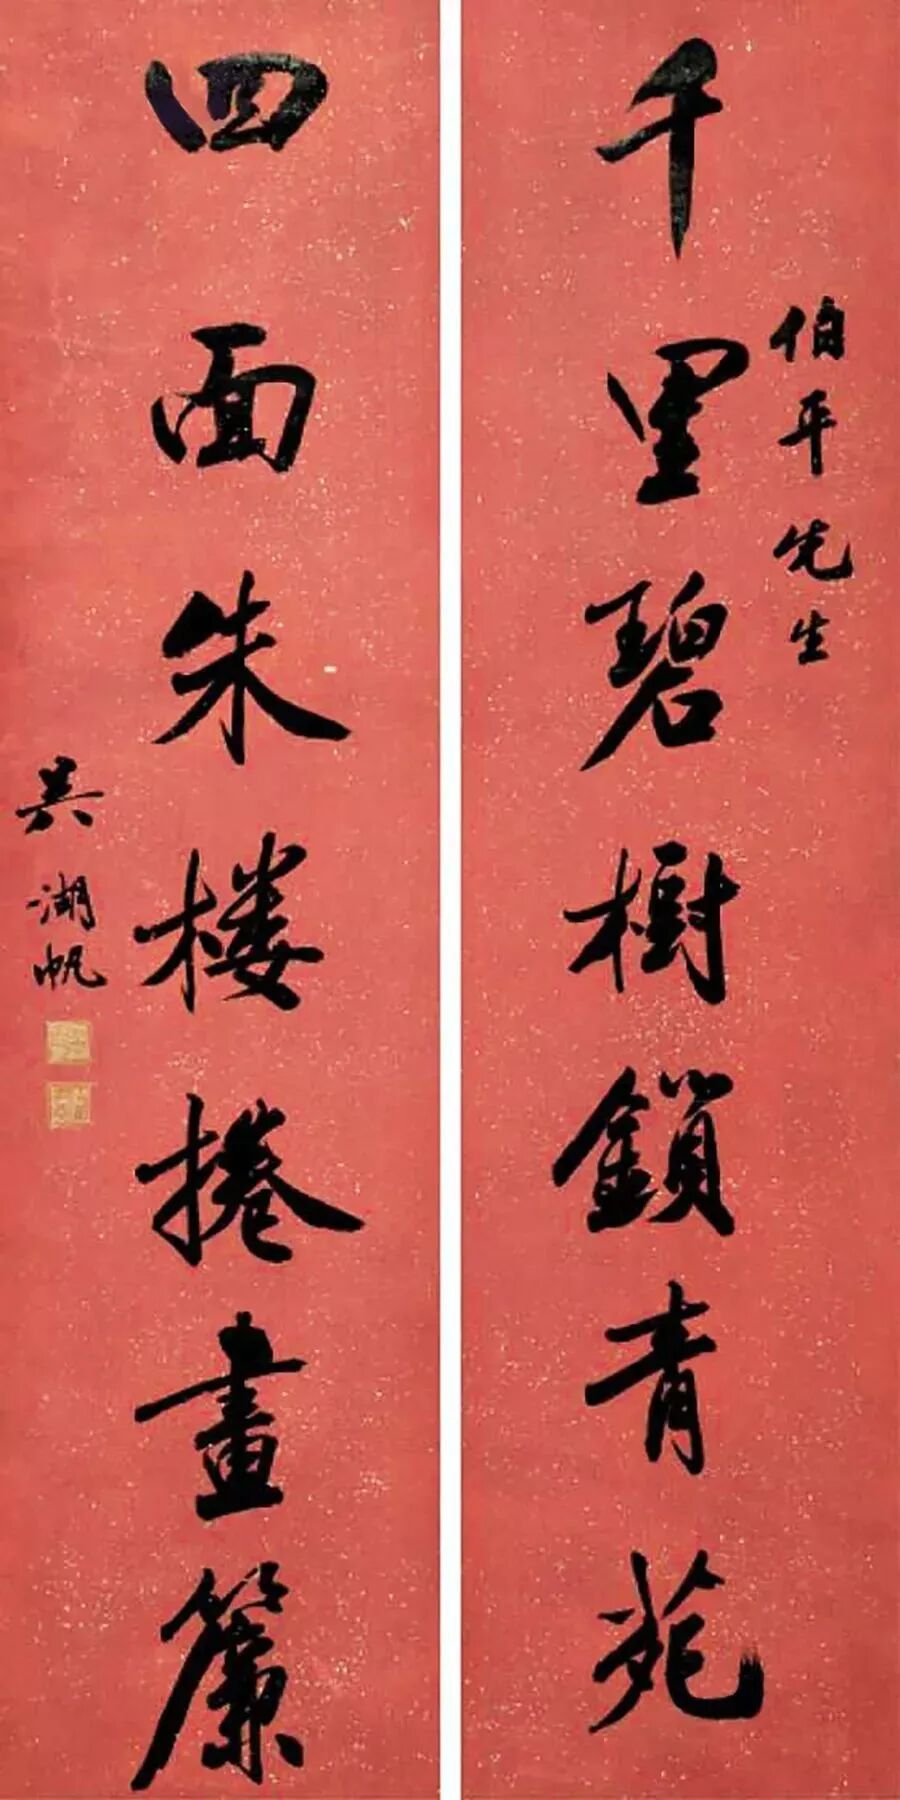 千里碧樹鎖青苑
伯平先生
四面朱楼捲畫簾
吴湖帆